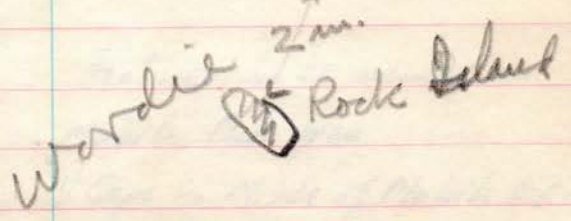 Wordie 2 m.
Rock Island